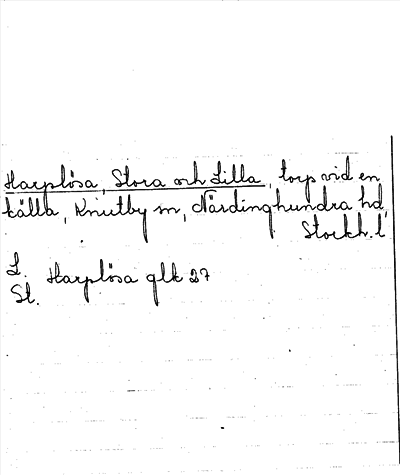 Harplösa, Stora och Lilla, torp vid en
källa, Knutby sn, Närdinghundra hd,
Stockh. l
L.
St. Harplösa glk 27